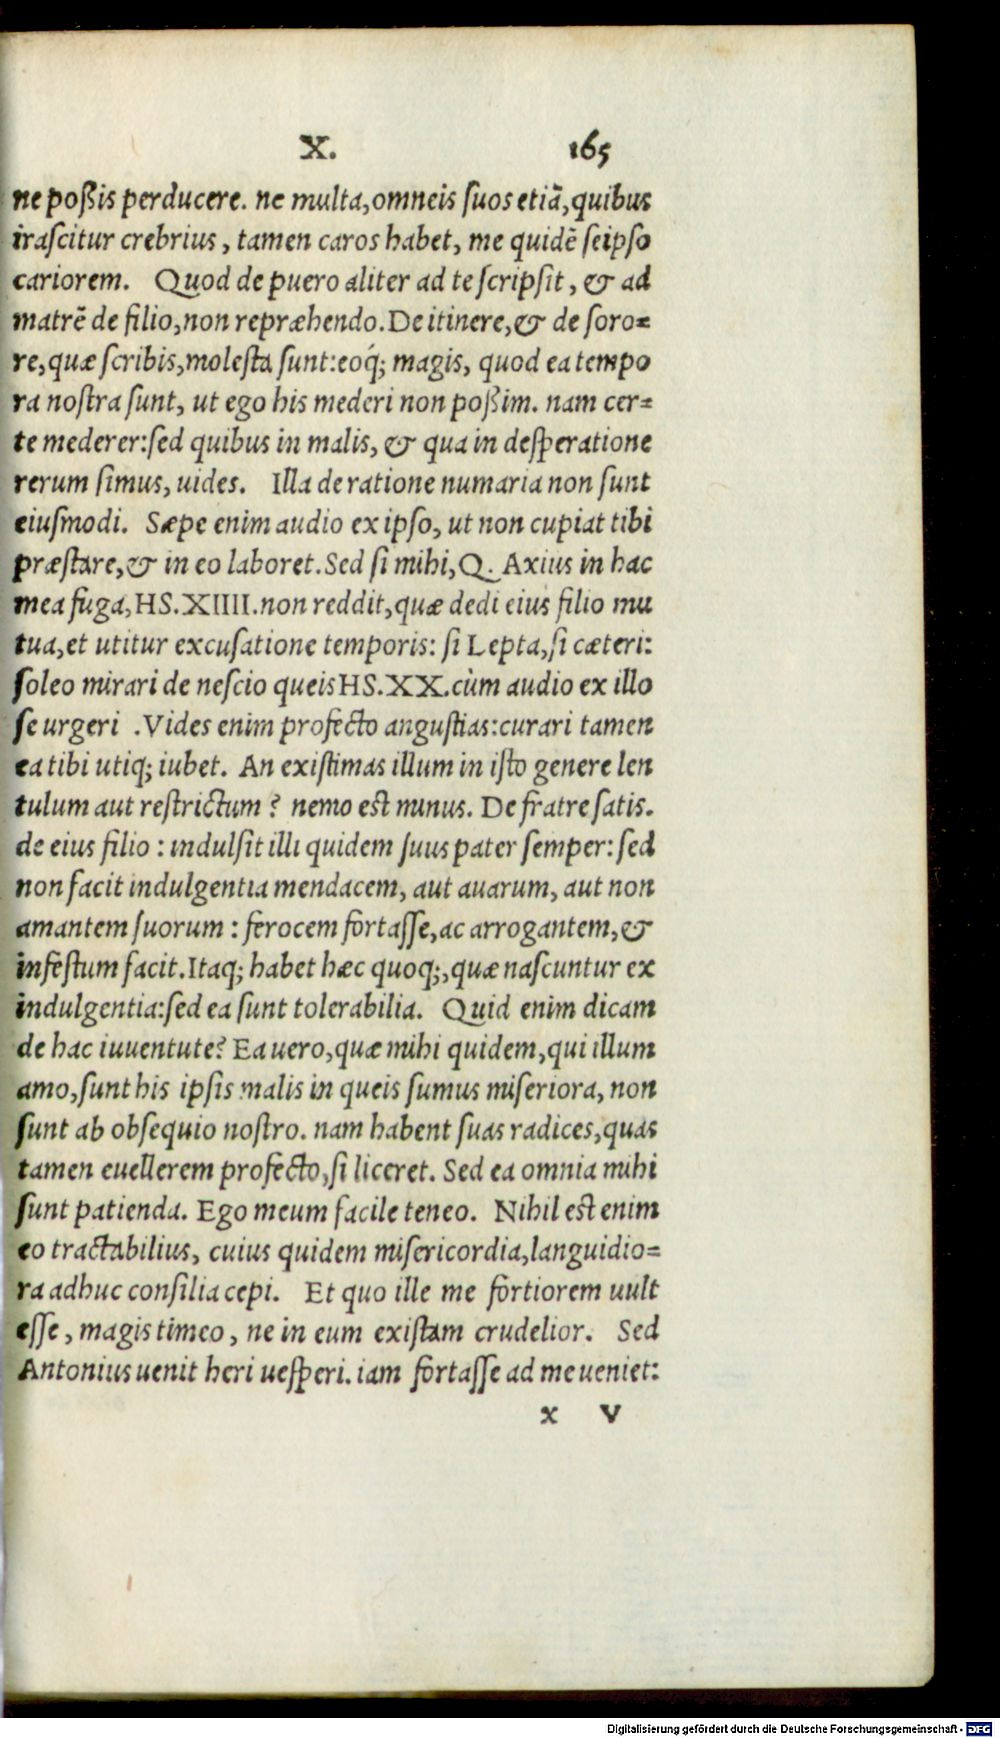 X. 165
ne poßis perducere. ne multa, omneis suos etiã, quibus
irascitur crebrius, tamen caros habet, me quidẽ seipso
cariorem. Quod de puero aliter ad te scripsit, & ad
matrẽ de filio, non repræhendo. De itinere, & de soro=
re, quæ scribis, molesta sunt: eoq́; magis, quod ea tempo
ra nostra sunt, ut ego his mederi non poßim. nam cer=
te mederer: sed quibus in malis, & qua in desperatione
rerum simus, uides. Illa de ratione numaria non sunt
eiusmodi. Sæpe enim audio ex ipso, ut non cupiat tibi
præstare, & in eo laboret. Sed si mihi, Q. Axius in hac
mea fuga, HS. XIIII. non reddit, quæ dedi eius filio mu
tua, et utitur excusatione temporis: si Lepta, si cæteri:
soleo mirari de nescio queis HS. XX. cùm audio ex illo
se urgeri . Vides enim profecto angustias: curari tamen
ea tibi utiq; iubet. An existimas illum in isto genere len
tulum aut restrictum? nemo est minus. De fratre satis.
de eius filio: indulsit illi quidem suus pater semper: sed
non facit indulgentia mendacem, aut auarum, aut non
amantem suorum: ferocem fortasse, ac arrogantem, &
infestum facit. Itaq; habet hæc quoq;, quæ nascuntur ex
indulgentia: sed ea sunt tolerabilia. Quid enim dicam
de hac iuuentute? Ea uero, quæ mihi quidem, qui illum
amo, sunt his ipsis malis in queis sumus miseriora, non
sunt ab obsequio nostro. nam habent suas radices, quas
tamen euellerem profecto, si liceret. Sed ea omnia mihi
sunt patienda. Ego meum facile teneo. Nihil est enim
eo tractabilius, cuius quidem misericordia, languidio=
ra adhuc consilia cepi. Et quo ille me fortiorem uult
esse, magis timeo, ne in eum existam crudelior. Sed
Antonius uenit heri uesperi. iam fortasse ad me ueniet:
x v
Digitalisierung gefördert durch die Deutsche Forschungsgemeinschaft - DFG